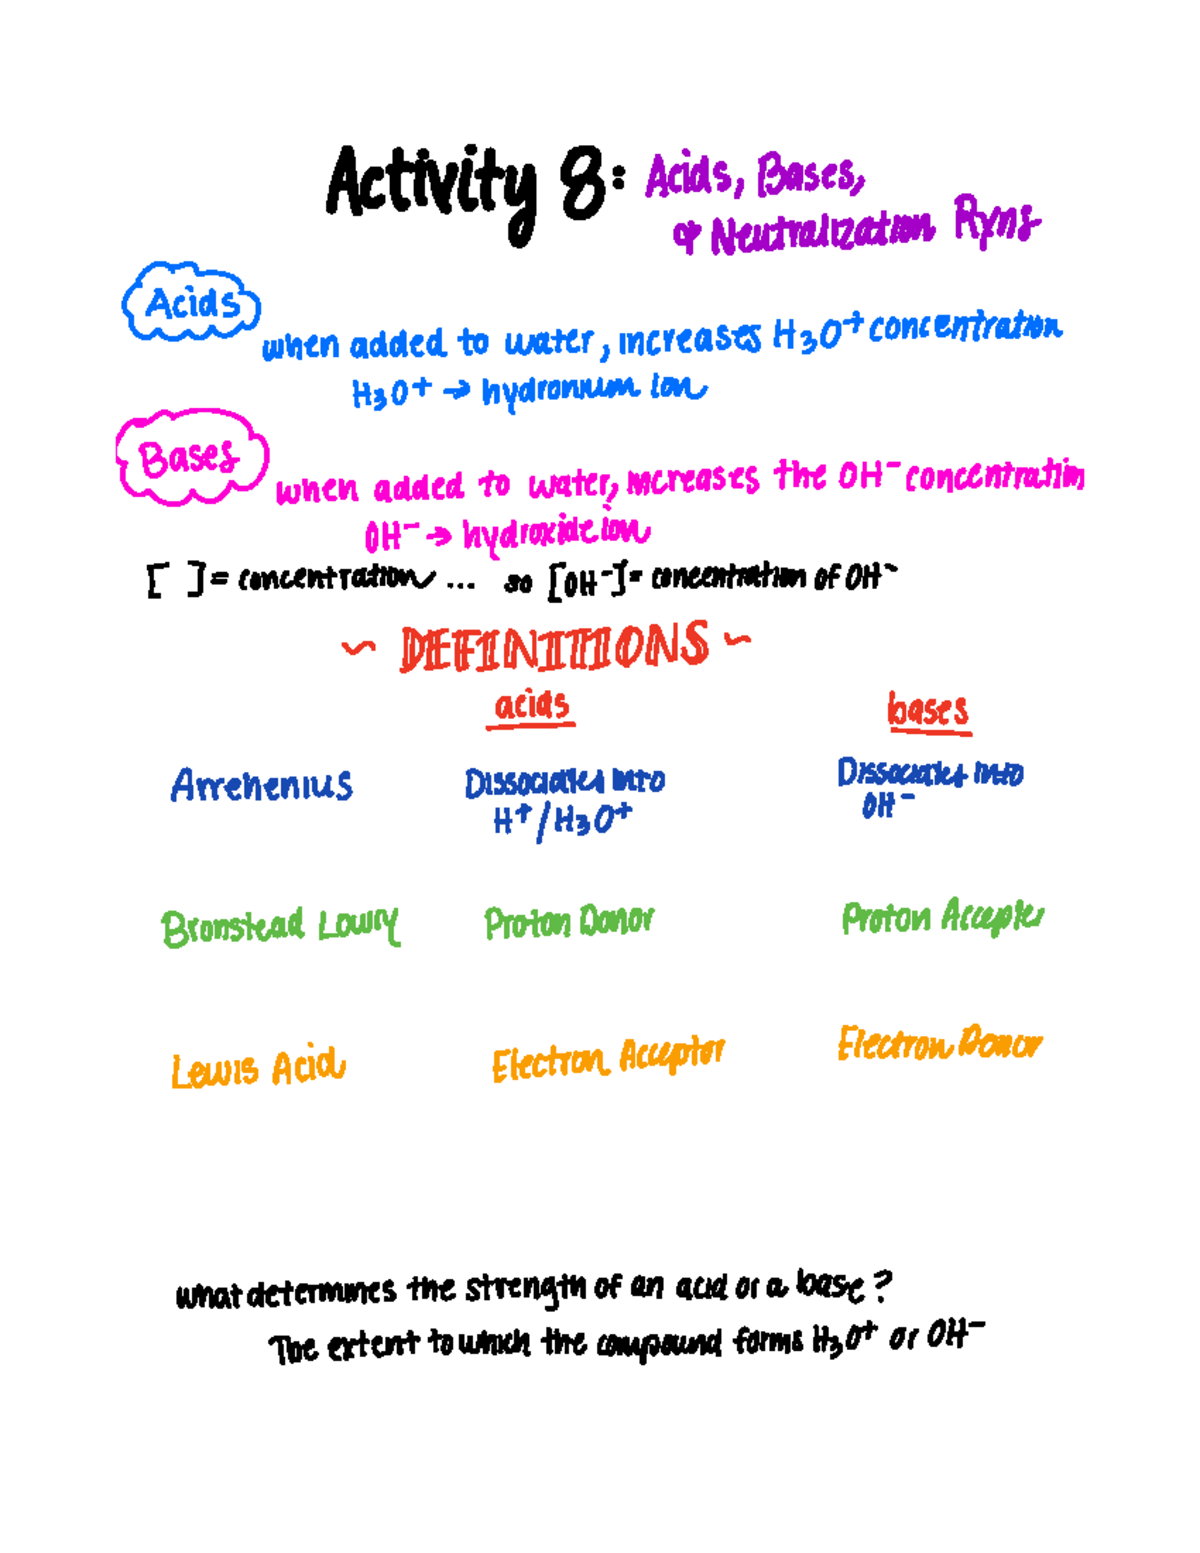 Activity 8: Acids, Bases,
& Neutralization Rxns
Acids
when added to water, increases H₃O⁺ concentration
H₃O⁺ → hydronium ion
Bases
when added to water, increases the OH⁻ concentration
OH⁻ → hydroxide ion
[ ] = concentration ... so [OH⁻] = concentration of OH⁻
~ DEFINITIONS ~
acids bases
Arrehenius Dissociates into Dissociates into
H⁺/H₃O⁺ OH⁻
Bronstead Lowry Proton Donor Proton Accepter
Lewis Acid Electron Acceptor Electron Donor
what determines the strength of an acid or a base?
The extent to which the compound forms H₃O⁺ or OH⁻